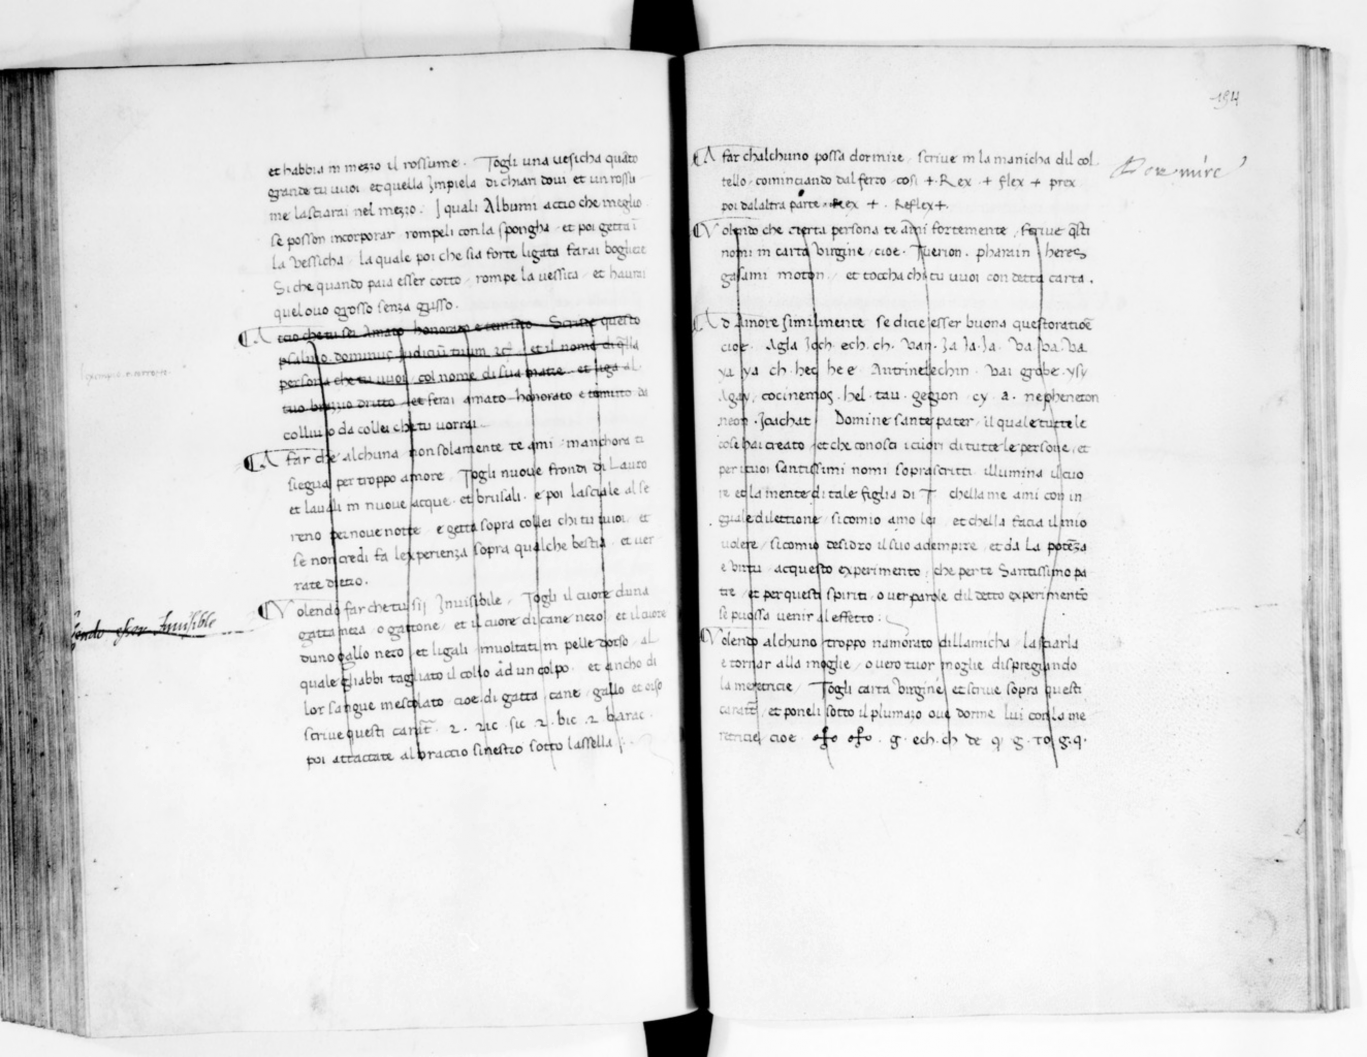 et habbia in mezzo il rossume. Togli una vesicha quãto
grande tu vuoi et quella Impiela di chiari dovi et un rossu
me lasciarai nel mezzo. I quali Albumi accio che meglio
se posson incorporar rompeli con la spongha et poi getta ĩ
la vessicha, la quale poi che sia forte ligata farai bogliere
Si che quando paia esser cotto, rompe la vessica, et haurai
quel ovo grosso senza gusso.
Accio che tu sei Amato honorato e temuto Scrive questo
psalmo dominus judiciũ tuum et il nome di q̃lla
persona che tu vuoi col nome di sua matre et liga al
tuo brazzo dritto et serai amato honorato e temuto da
collui o da collei che tu vorrai.
A far che alchuna non solamente te ami manchora ti
siegua per troppo amore Togli nuove frondi di Lauro
et lavali in nuove acque et brusali e poi lasciale al se
reno per nove notte e getta sopra collei chi tu vuoi et
se non credi fa lexperienza sopra qualche bestia et ver
rate drieto.
Volendo far che tu sij Invisibile, Togli il cuore duna
gatta nera o gattone et il cuore di cane nero et il cuore
duno gallo nero et ligali involtati in pelle dorso al
quale gli abbi tagliato il collo ad un colpo et ancho di
lor sangue mescolato cioe di gatta cane gallo et orso
scrive questi caratt̃ 2. zic sic 2. bic 2 barac
poi attaccate al braccio sinestro sotto lassella
Volendo esser Invisible
194
A far chalchuno possa dormire scrive in la manicha dil col
Dormire
tello cominciando dal ferro cosi + Rex + flex + prex
poi dalaltra parte Rex + Reflex+.
Volendo che cierta persona te ami fortemente scrive q̃sti
nomi in carta virgine cioe. Tuerion. pharain heres
gasami moton et toccha chi tu vuoi con detta carta.
Ad Amore similmente se dicie esser buona questoratioẽ
cioe Agla Joch ech. ch. van. Ja Ja. Ja va va. va
ya ya ch. hec he e Antrinelechin vai grobe ysy
Agay, cocinemos hel. tau. gegion cy a. nepheneton
neon Jcachat Domine sante pater, il quale tutte le
cose hai creato et che conosci i cuori di tutte le persone, et
per i tuoi santissimi nomi soprascritti illumina il cuo
re et la mente di tale figlia di T chella me ami con in
guale dilettione si comio amo lei et chella facia il mio
volere si comio desidro il suo adempire et da la potẽza
e virtu acquesto experimento che per te Santissimo pa
tre et per questi spiriti o ver parole dil detto experimento
se puossa venir al effetto:
Volendo alchuno troppo namorato dillamicha lasciarla
e tornar alla moglie o vero tuor moglie dispregiando
la meretricie Togli carta virgine et scrive sopra questi
caratt̃ et poneli sotto il plumazo ove dorme lui con la me
retricie cioe g. ech. ch de q g. ro g. q.